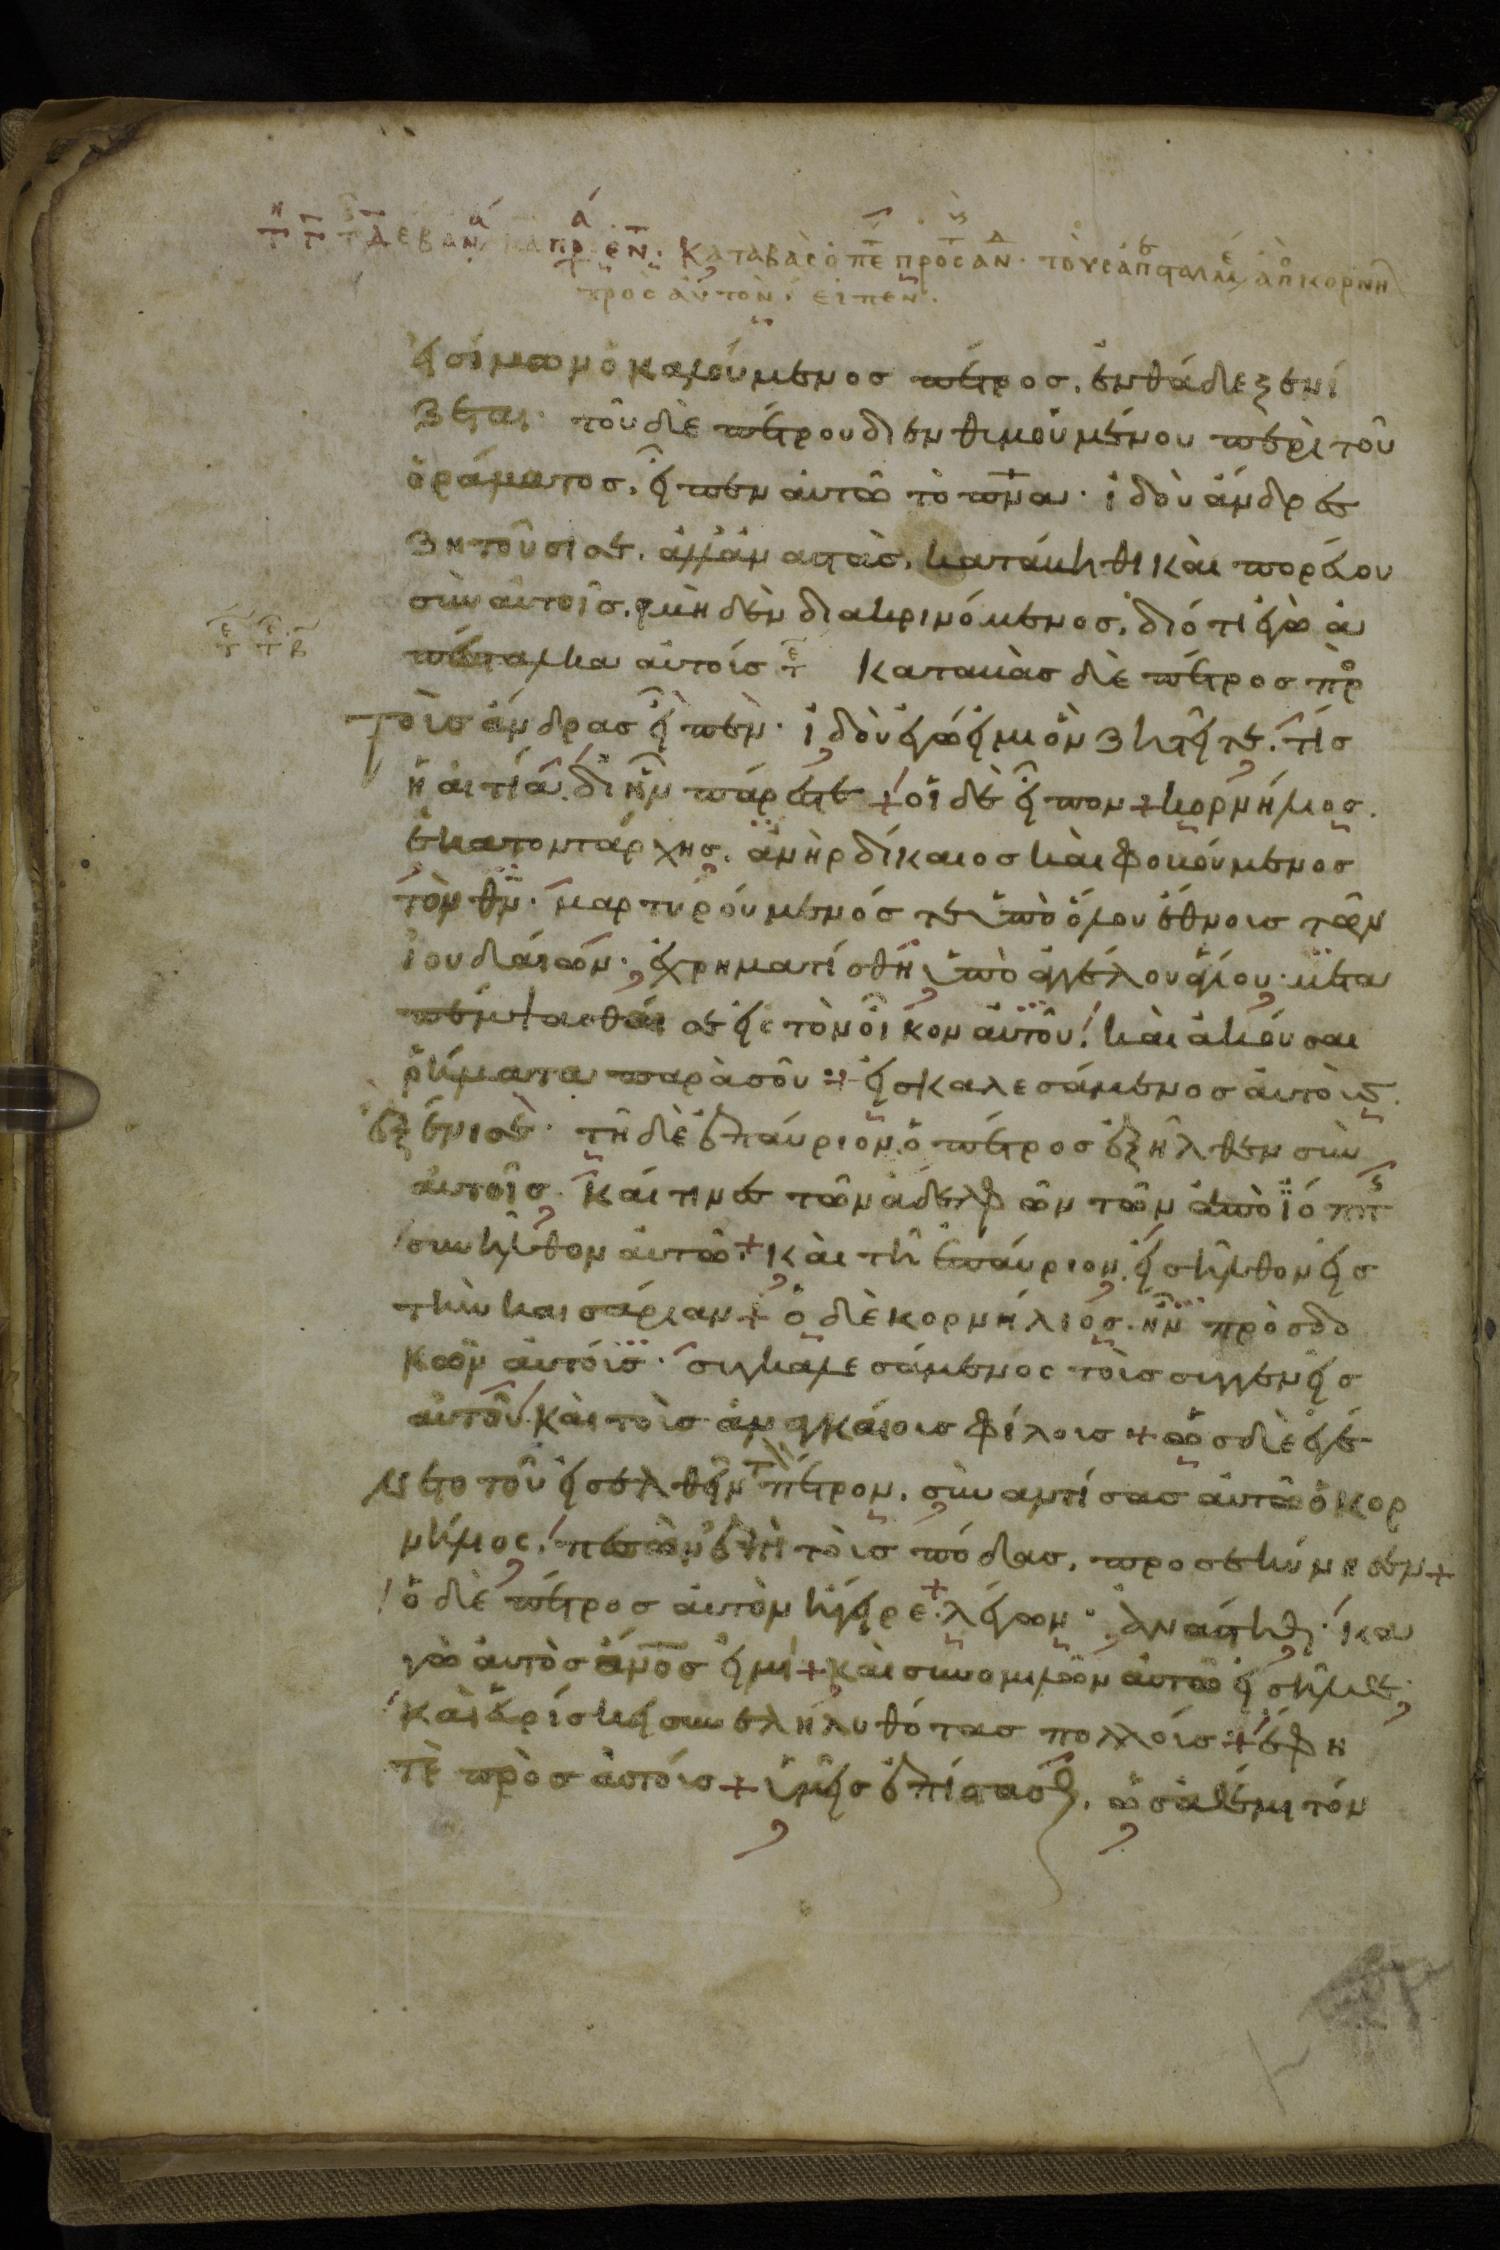 Καταβὰς ὁ πε προς αν τοὺς ἀπ σταλμ ἀπ κορνη
προς αὐτον, εἰπεν.
εἰ σίμων ὁ καλούμενος πέτρος, ἐνθάδε ξενί
ζεται· τοῦ δὲ πέτρου διενθιμουμένου περὶ τοῦ
ὁράματος, εἶπεν αὐτῶ τὸ πνα· ἰδοὺ ἄνδρες
ζητοῦσί σε, ἀλλὰ ναστὰς, κατάβηθι καὶ πορέυου
σὺν αὐτοῖς, μηδὲν διακρινόμενος, διότι ἐγὼ ἀ
πέσταλκα αὐτοίς τε Καταβὰς δὲ πέτρος πρ
τοὺς ἄνδρας εἶπεν· ἰδοὺ ἐγώ εἰμι ὃν ζητεῖτε. τίς
ἡ αιτία. δι ἣν πάρεστε + οἱ δὲ εἶπον + κορνήλιος.
ἑκατοντάρχης, ἀνὴρ δίκαιος καὶ φοβούμενος
τὸν θν· μαρτυρούμενός τε ὑπὸ ὅλου ἔθνους τῶν
ἰουδαίων· ἐχρηματίσθη ὑπὸ ἀγγέλου ἁγίου· μετα
πέμψασθαί σε εἰς τὸν οἶκον αὐτοῦ! καὶ ἀκοῦσαι
ῥήματα παρὰ σοῦ + εἰσκαλεσάμενος αὐτοὺς.
ἐξένισε· τῆ δὲ ἐπάυριον, ὁ πέτρος ἐξῆλθεν σὺν
αὐτοῖς. καί τινες τῶν ἀδελφῶν τῶν ἀπὸ ἰόππ
συνῆλθον αὐτῶ + καὶ τῆ ἐπάυριον, εἰσῆλθον εἰς
τὴν καισάριαν + ὁ δὲ κορνήλιός. ἦν προσδο
κῶν αὐτούς· συγκαλεσάμενος τοὺς συγγενεῖς
αὐτοῦ! καὶ τοὺς ἀναγκαίους φίλους + ὡς δὲ ἐγέ
νετο τοῦ εἰσελθεῖν τν πέτρον, συναντίσας αὐτῶ ὁ κορ
νήλιος! πεσὼν ἐπὶ τοὺς πόδας, προσεκύνησεν +
ὁ δὲ πέτρος αὐτὸν ἤγειρε + λέγων· ἀνάστηθι· κα
γὼ αὐτὸς ανος εἰμι + καὶ συνομιλῶν αὐτῶ εἰσῆλθε·
καὶ ἑυρίσκει συνελήλυθότας πολλούς + ἔφη
τὲ πρὸς αὐτούς + ὑμεῖς ἐπίστασθ, ὡς ἀθέμιτόν